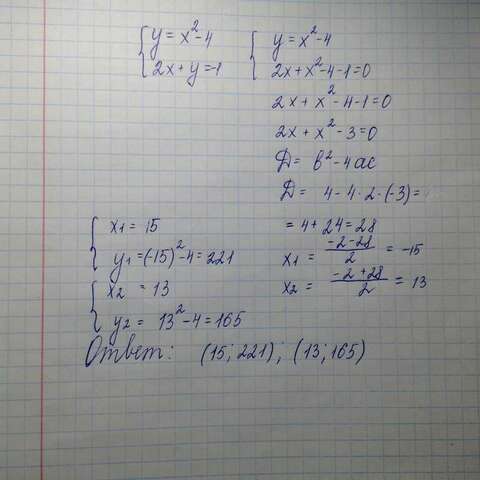 { y = x² - 4
{ 2x + y = -1
{ y = x² - 4
{ 2x + x² - 4 - 1 = 0
2x + x² - 4 - 1 = 0
2x + x² - 3 = 0
D = b² - 4ac
D = 4 - 4 · 2 · (-3) =
= 4 + 24 = 28
x1 = (-2 - 28)/2 = -15
x2 = (-2 + 28)/2 = 13
{ x1 = 15
{ y1 = (-15)² - 4 = 221
{ x2 = 13
{ y2 = 13² - 4 = 165
Ответ: (15; 221); (13; 165)